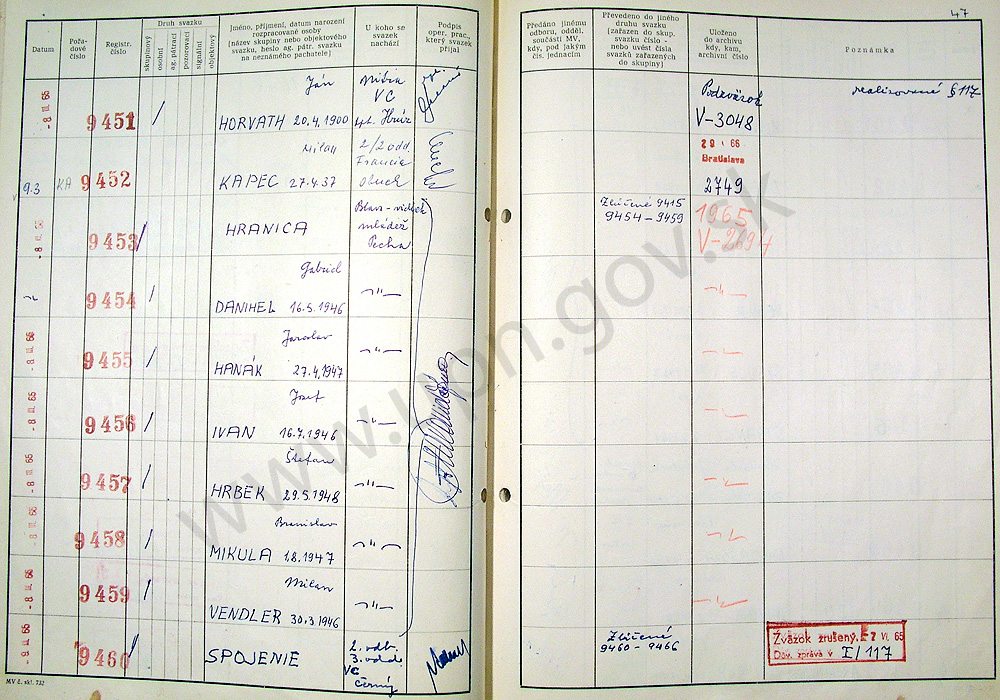 47
Datum
Pořa-
dové
číslo
Registr.
číslo
Druh svazku
skupinový
osobní
ag. pátrací
pozorovací
signální
objektový
Jméno, příjmení, datum narození
rozpracované osoby
(název skupiny nebo objektového
svazku, heslo ag. pátr. svazku
na neznámého pachatele)
U koho se
svazek
nachází
Podpis
oper. prac.,
který svazek
přijal
Předáno jinému
odboru, odděl.
součásti MV,
kdy, pod jakým
čís. jednacím
Převedeno do jiného
druhu svazku
(zařazen do skup.
svazku číslo -
nebo uvést čísla
svazků zařazených
do skupiny)
Uloženo
do archivu
kdy, kam,
archivní číslo
Poznámka
-8 III. 65
9451
Ján
HORVATH 20.4.1900
Nitra
VC
Podzväzok
V-3048
realizované § 117
9.3
KA
9452
Milan
KAPEC 27.4.37
2/2 odd.
29 I 66
Bratislava
2749
-8 III. 65
9453
HRANICA
mládež
Pecha
Zlúčené 9415
9454-9459
1965
V-2694
9454
Gabriel
DANIHEL 16.5.1946
-"-
-"-
-8 III. 65
9455
Jaroslav
HANÁK 27.4.1947
-"-
-"-
-8 III. 65
9456
Jozef
IVAN 16.7.1946
-"-
-"-
-8 III. 65
9457
Štefan
HRBEK 29.5.1948
-"-
-"-
-8 III. 65
9458
Branislav
MIKULA 1.8.1947
-"-
-"-
-8 III. 65
9459
Milan
VENDLER 30.3.1946
-"-
-"-
-8 III. 65
9460
SPOJENIE
2. odb.
VC
černý
Zlúčené
9460-9466
Zväzok zrušený. 7 VI. 65
Dôv. zpráva v I/117
MV č. skl. 732
www.upn.gov.sk